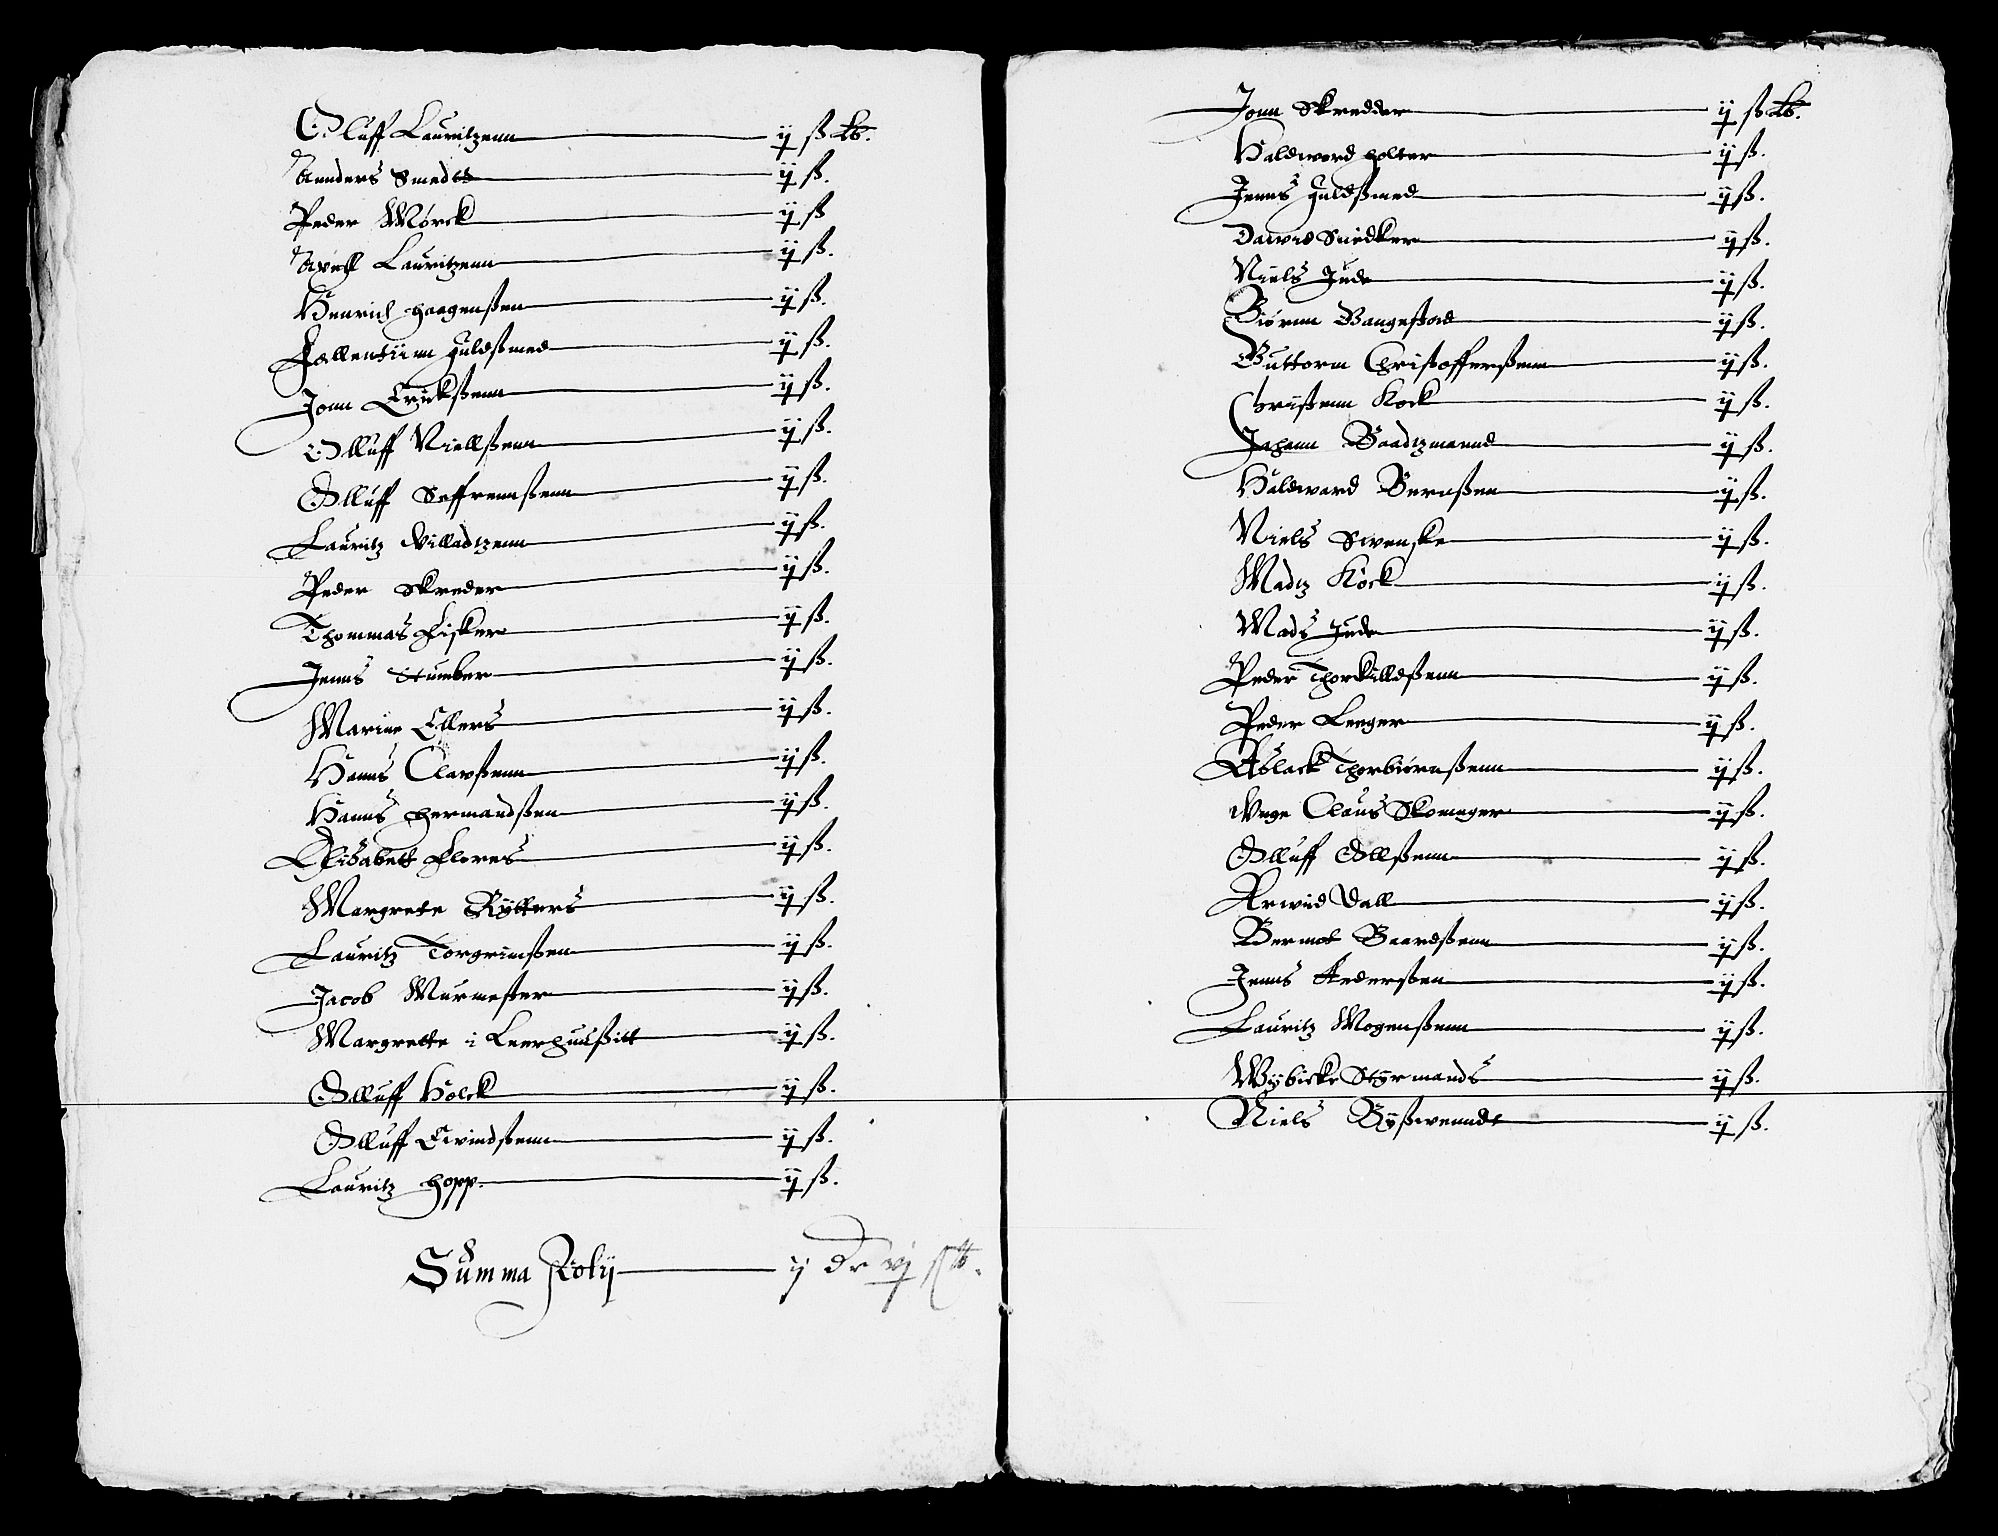 Oluff Lauritzenn ij ß lb.
Annders Smedtt ij ß.
Peder Mørck ij ß
Axell Lauritzenn ij ß.
Henrich Haagenßen ij ß.
Fallentiinn Guldßmed ij ß.
Jonn Erickßenn ij ß.
Olluff Niellßenn ij ß.
Olluff Seffrennßenn ij ß.
Lauritz Villadtzenn ij ß.
Peder Skreder ij ß.
Thommas Fisker ij ß.
Jenns Stumber ij ß.
Marine Ellers ij ß.
Hanns Clawßenn ij ß.
Hanns Hermandßen ij ß.
Elisabett Flores ij ß.
Margrete Rytters ij ß.
Lauritz Torgrimßen ij ß.
Jacob Murmester ij ß.
Margrette i Leerhuußitt ij ß.
Olluff Holck ij ß.
Olluff Evindßenn ij ß.
Lauritz Hopp. ij ß.
Summa Folij ij dr vj ß
Jonn Skredder ij ß lb.
Haldword Holter ij ß.
Jenns Guldßmed ij ß.
Dawid Snedker ij ß.
Niels Jude ij ß.
Biørnn Bangestad ij ß.
Guttorm Christofferßenn ij ß.
Christenn Kock ij ß.
Johann Baadtzmannd ij ß.
Haldword Bernßen ij ß.
Niels Swenske ij ß.
Madtz Kock ij ß.
Mads Jude ij ß.
Peder Thorkilldßenn ij ß.
Peder Leeger ij ß.
Aslack Thorbiørnßenn ij ß.
Unge Claus Skomager ij ß.
Olluff Ollßenn ij ß.
Arwid Dall ij ß.
Bermot Baardßenn ij ß.
Jenns Anderßen ij ß.
Lauritz Mogenßenn ij ß.
Wybicke Styrmands ij ß.
Niels Byßwenndt ij ß.